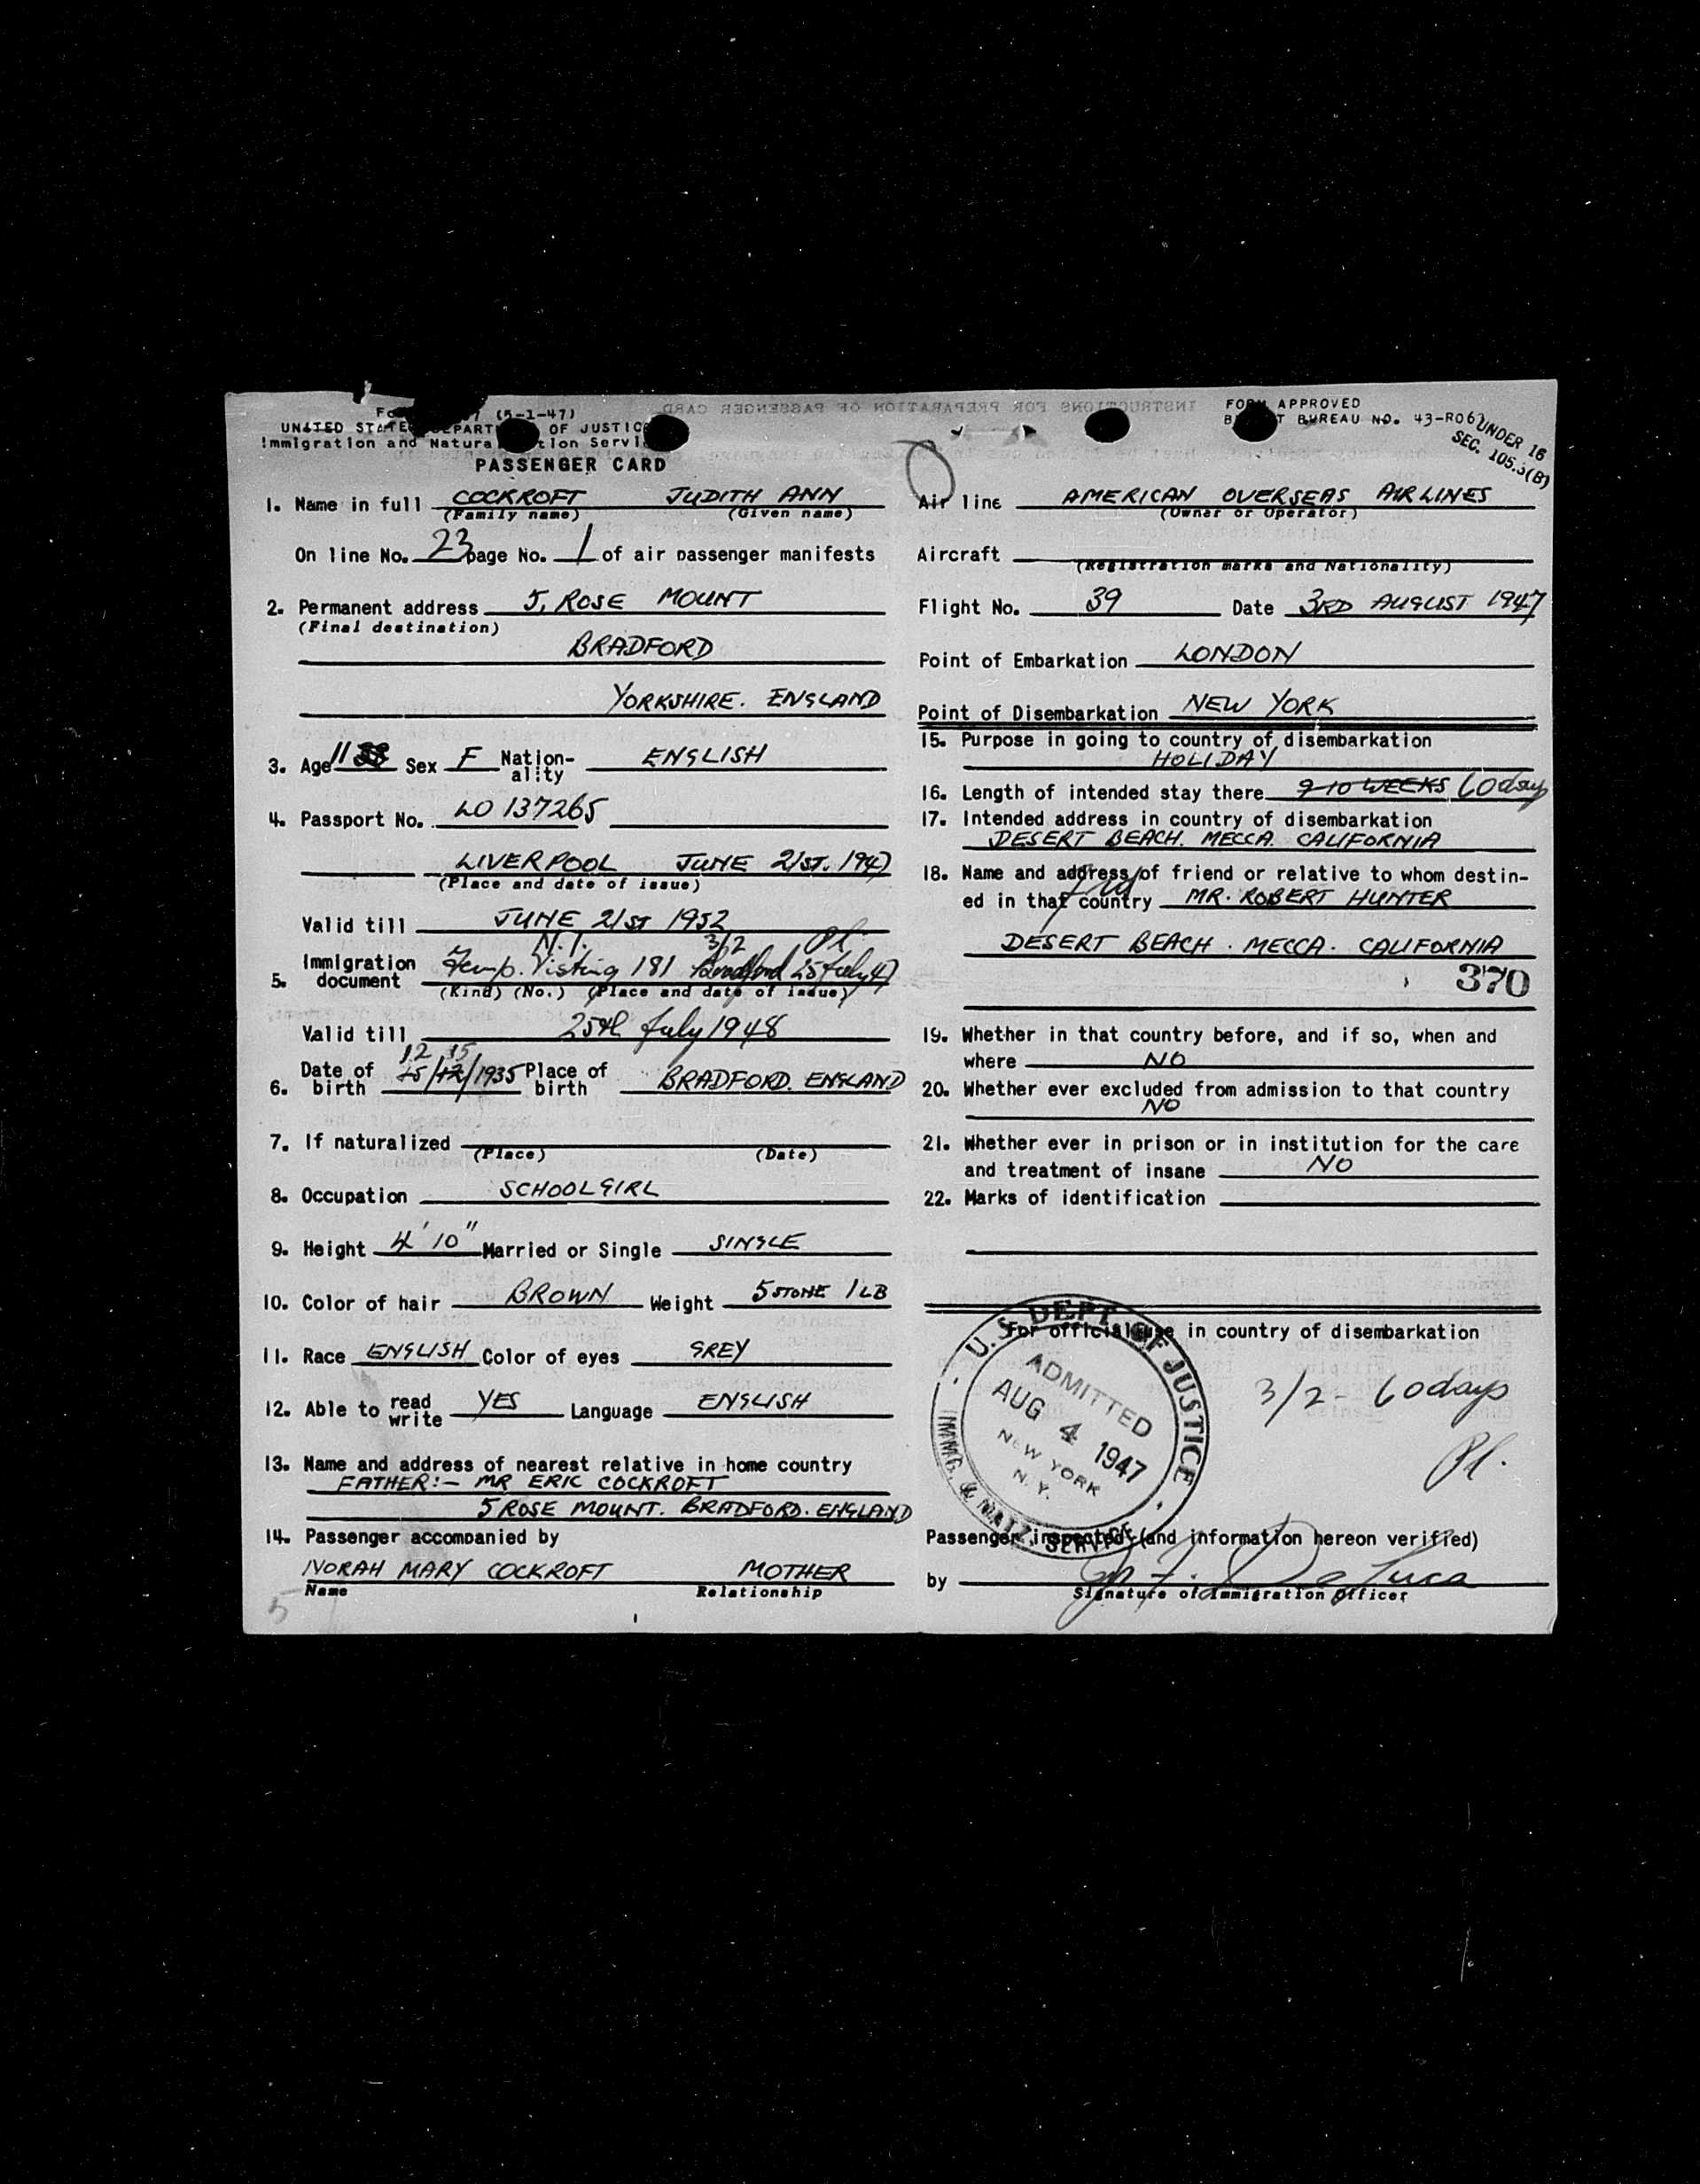 (5-1-47)
UNITED STATES DEPART OF JUSTIC
Immigration and Natura tion Servi
PASSENGER CARD
INSTRUCTIONS FOR PREPARATION OF PASSENGER CARD
FORM APPROVED
B T BUREAU NO. 43-R063
UNDER 16
SEC. 105.3(B)
1. Name in full COCKROFT JUDITH ANN
(Family name) (Given name)
On line No. 23 page No. 1 of air passenger manifests
2. Permanent address 5, ROSE MOUNT
(Final destination)
BRADFORD
YORKSHIRE. ENGLAND
3. Age 11 Sex F Nation-ality ENGLISH
4. Passport No. LO 137265
LIVERPOOL JUNE 21ST. 1947
(Place and date of issue)
Valid till JUNE 21ST 1952
N.I. 3/2 Pl.
5. Immigration document Temp. Visting 181 Bradford 25 July 47
(Kind) (No.) (Place and date of issue)
Valid till 25th July 1948
12 15
6. Date of birth 15/12/1935 Place of birth BRADFORD. ENGLAND
7. If naturalized
(Place) (Date)
8. Occupation SCHOOLGIRL
9. Height 4' 10" Married or Single SINGLE
10. Color of hair BROWN Weight 5 STONE 1 LB
11. Race ENGLISH Color of eyes GREY
12. Able to read write YES Language ENGLISH
13. Name and address of nearest relative in home country
FATHER:- MR ERIC COCKROFT
5 ROSE MOUNT. BRADFORD. ENGLAND
14. Passenger accompanied by
NORAH MARY COCKROFT MOTHER
Name Relationship
5
Air line AMERICAN OVERSEAS AIRLINES
(Owner or Operator)
Aircraft
(Registration marks and Nationality)
Flight No. 39 Date 3RD AUGUST 1947
Point of Embarkation LONDON
Point of Disembarkation NEW YORK
15. Purpose in going to country of disembarkation
HOLIDAY
16. Length of intended stay there 9-10 WEEKS 60 days
17. Intended address in country of disembarkation
DESERT BEACH. MECCA. CALIFORNIA
18. Name and address of friend or relative to whom destin-
ed in that country MR. ROBERT HUNTER
DESERT BEACH. MECCA. CALIFORNIA
370
19. Whether in that country before, and if so, when and
where NO
20. Whether ever excluded from admission to that country
NO
21. Whether ever in prison or in institution for the care
and treatment of insane NO
22. Marks of identification
For official use in country of disembarkation
U.S. DEPT. OF JUSTICE
ADMITTED
AUG 4 1947
NEW YORK
N.Y.
IMMG. & NATZ. SERVICE
3/2 - 60 days
Pl.
Passenger inspected (and information hereon verified)
by De Luca
Signature of Immigration Officer